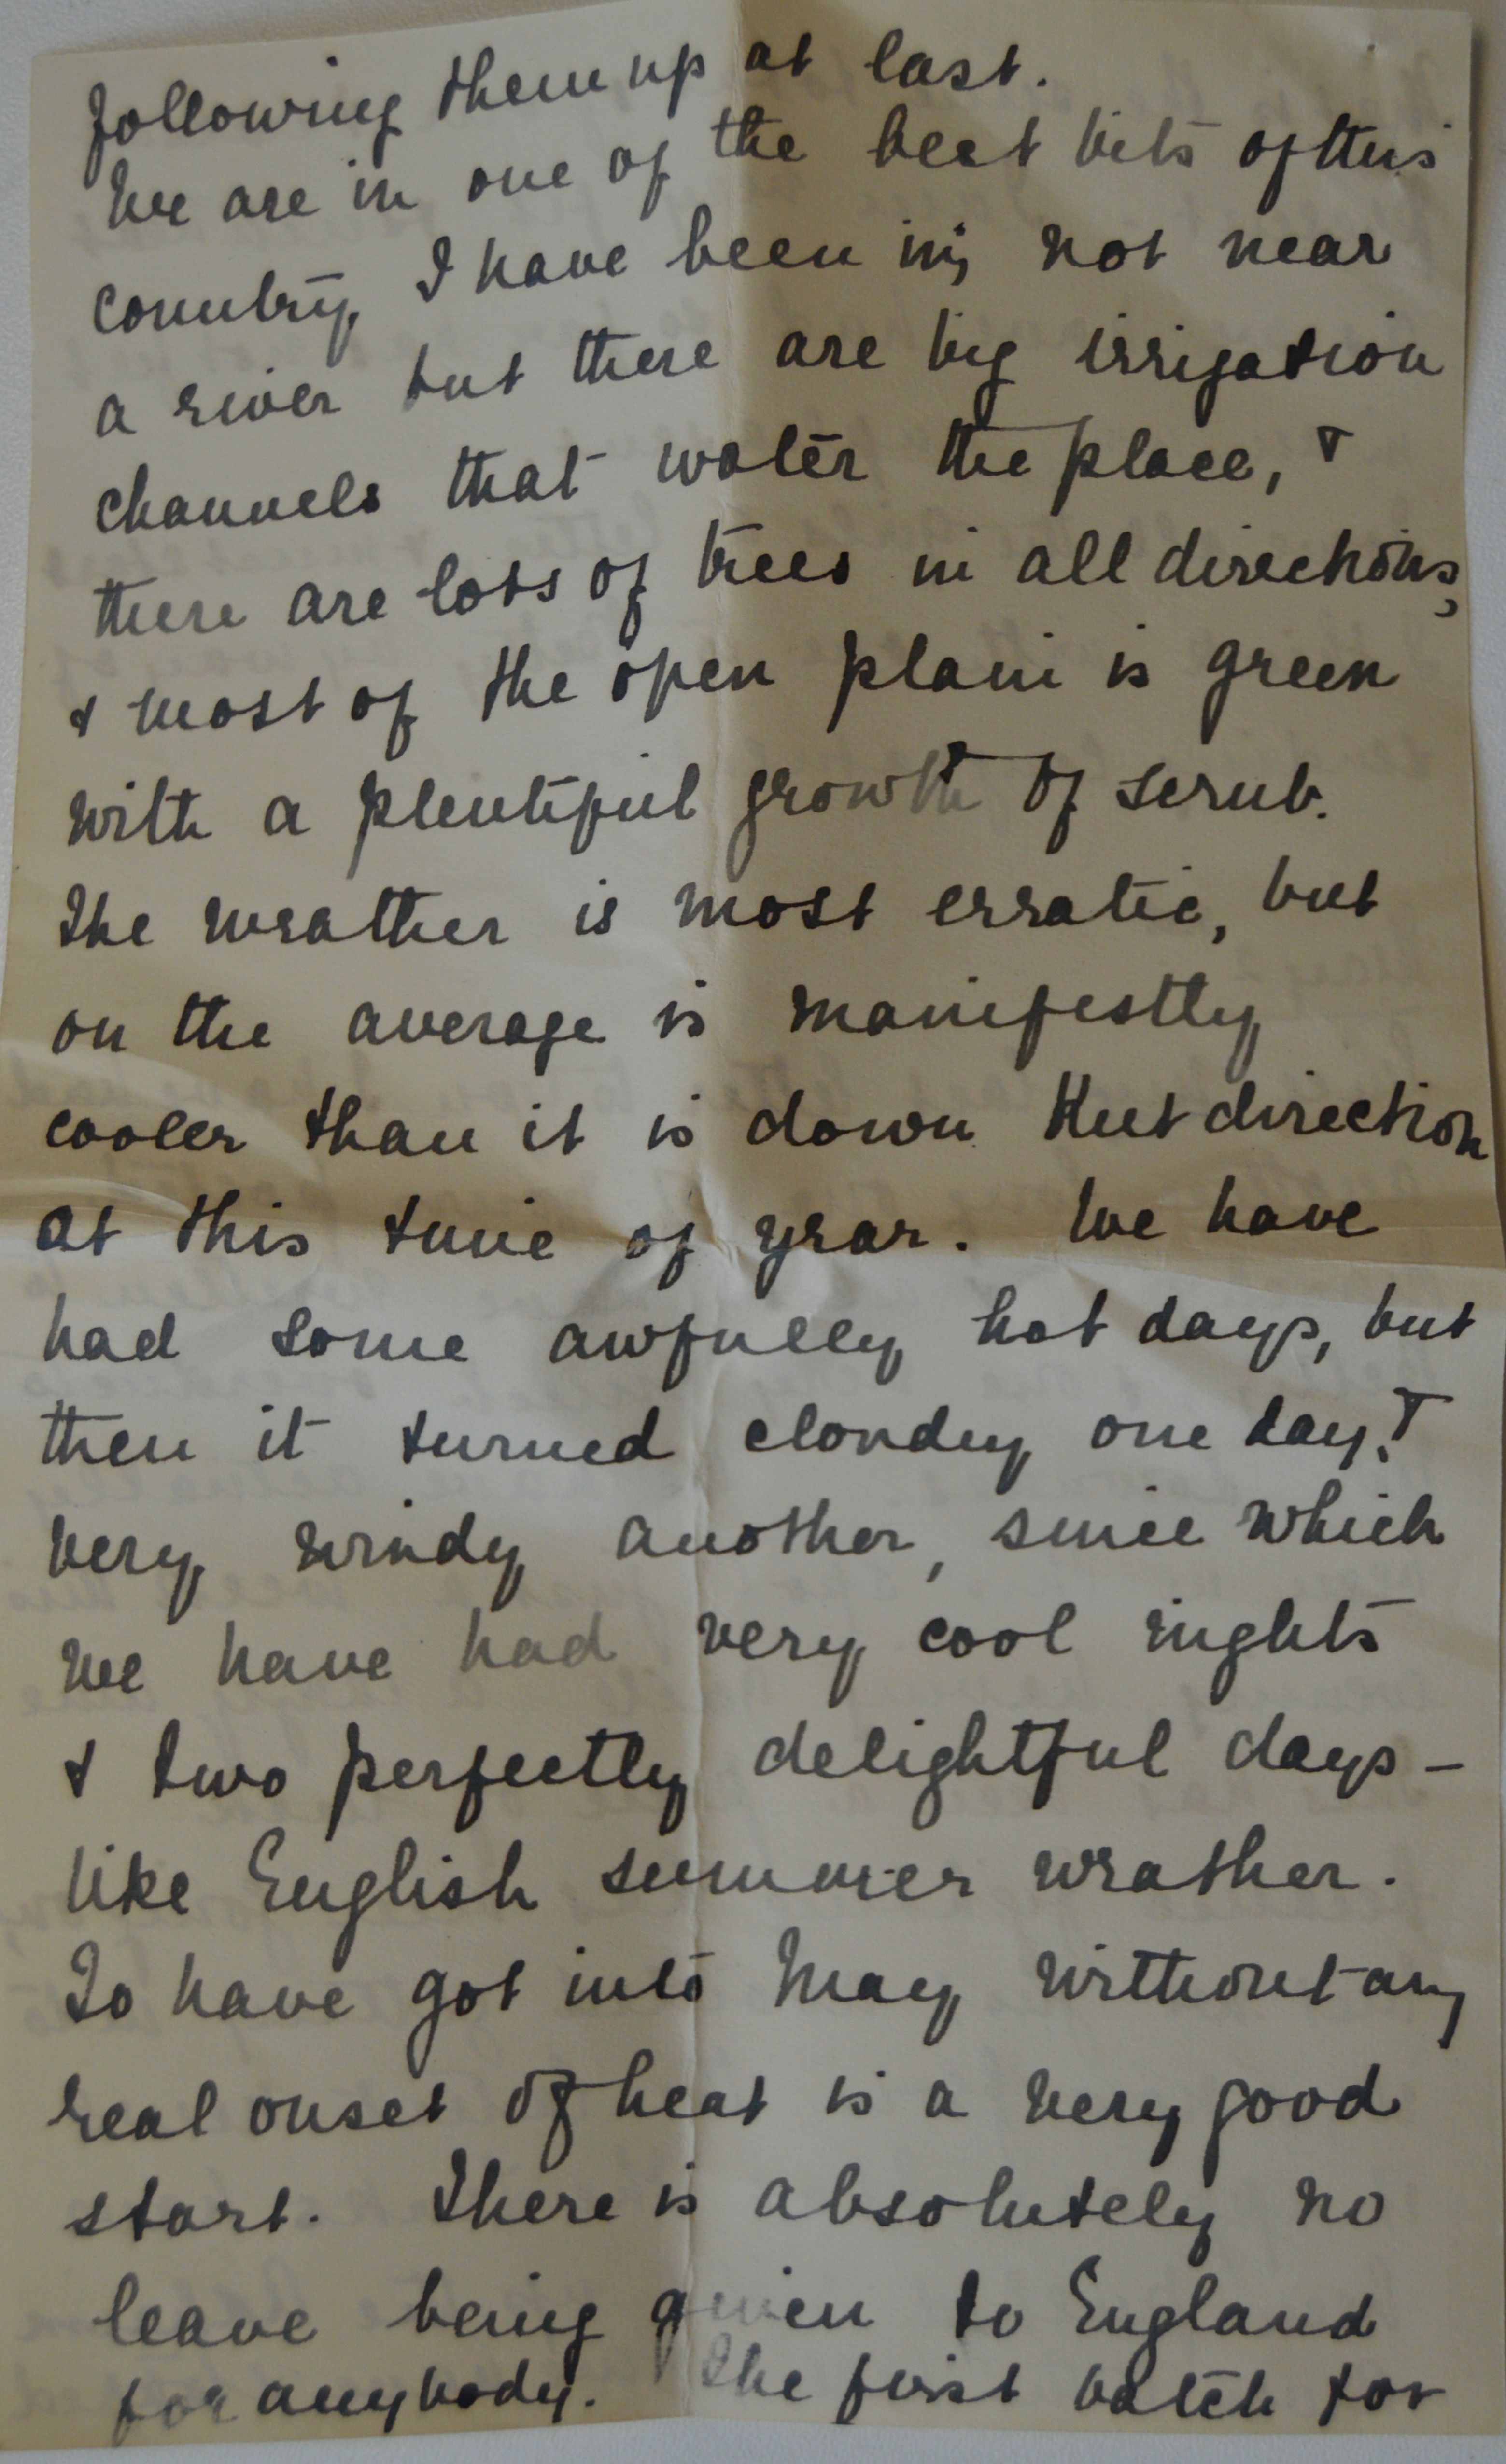 following them up at last.
We are in one of the best bits of this
country I have been in, not near
a river but there are big irrigation
channels that water the place, &
there are lots of trees in all directions,
& most of the open plain is green
with a plentiful growth of scrub.
The weather is most erratic, but
on the average is manifestly
cooler than it is down Kut direction
at this time of year. We have
had some awfully hot days, but
then it turned cloudy one day, &
very windy another, since which
we have had very cool nights
& two perfectly delightful days -
like English summer weather.
To have got into May without any
real onset of heat is a very good
start. There is absolutely no
leave being given to England
for anybody. The first batch for